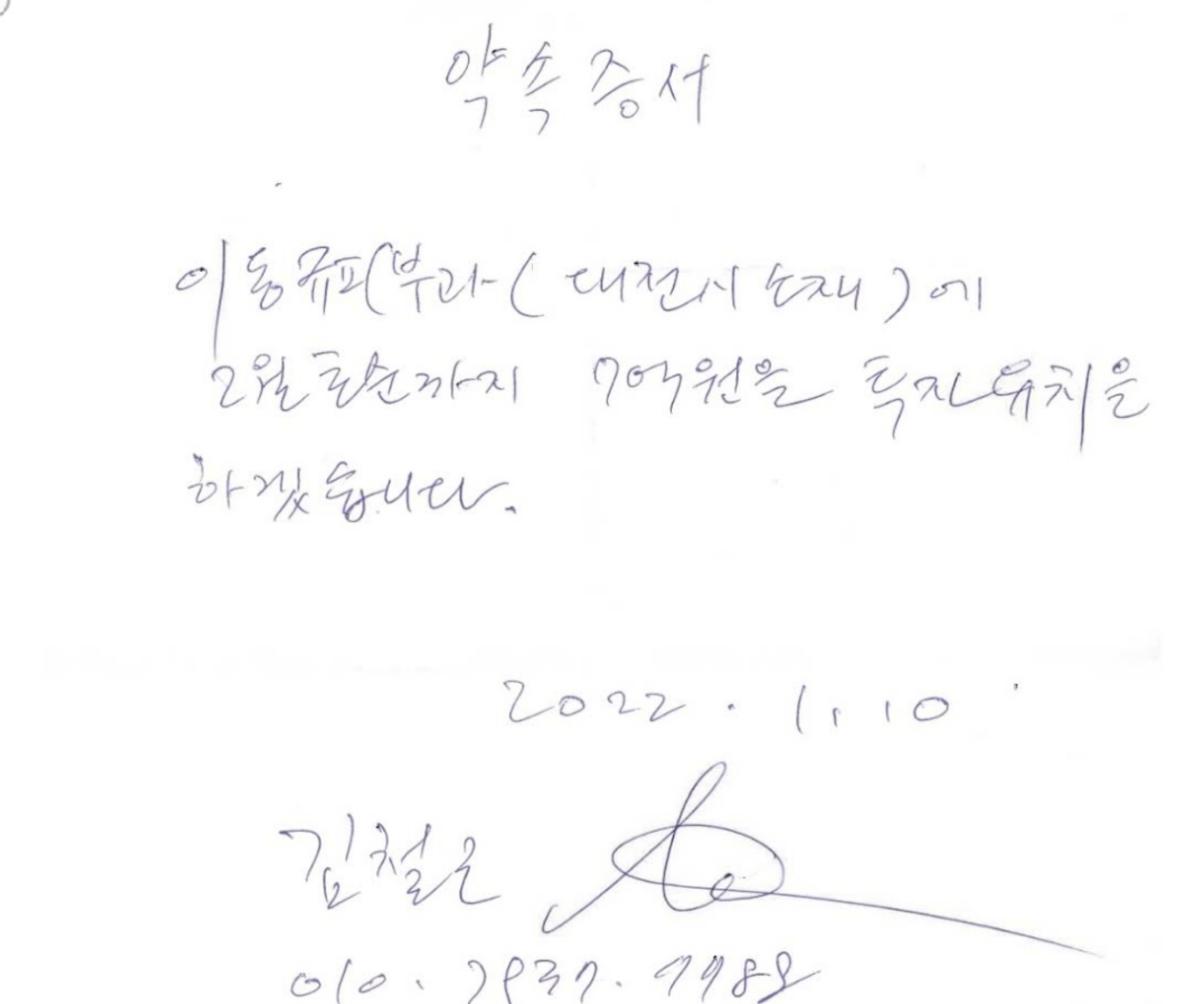 약속증서
이동규피부과(대전시소재)에
2월초순까지 7억원을 투자유치을
하겠습니다.
2022.1.10
김철근
010.